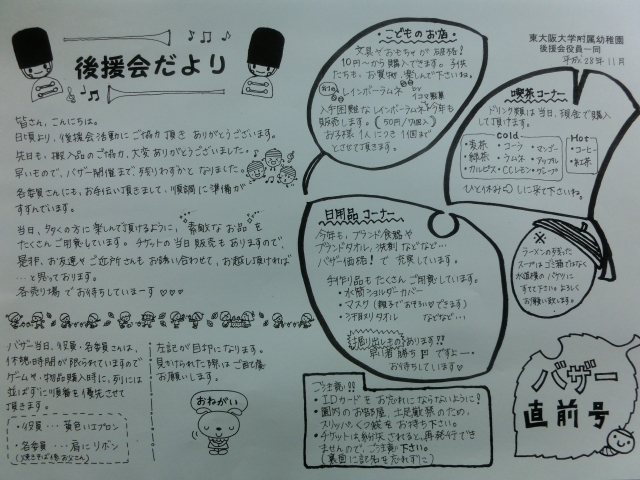 後援会だより
東大阪大学附属幼稚園
後援会役員一同
平成28年11月
皆さん、こんにちは。
日頃より、後援会活動にご協力頂き ありがとうございます。
先日も、搬入品のご協力、大変ありがとうございました。
早いもので、バザー開催まで、残りわずかと なりました。
各委員さんにも、お手伝い頂きまして、順調に準備が
すすんでいます。
当日、多くの方に楽しんで頂けるように、素敵な お品を
たくさんご用意しています。チケットの当日販売もありますので、
是非、お友達や ご近所さんも お誘い合わせて、お越し頂ければ
…と思っております。
各売り場で お待ちしていまーす♡♡♡
こどものお店
文具やおもちゃが 破格!
10円〜から購入できます。子供
たちも、お買物、楽しんで下さいね。
レインボーラムネ by イコマ製菓
入手困難なレインボーラムネ今年も
販売します。(50円/1個入)
お子様 1人につき 1個まで
とさせて頂きます。
喫茶コーナー
ドリンク類は当日、現金で購入
して頂けます。
Cold
・麦茶 ・コーラ ・マンゴー
・緑茶 ・ラムネ ・アップル
・カルピス ・CCレモン ・グレープ
Hot
・コーヒー
・紅茶
ひと休みしに来て下さいね。
日用品コーナー
今年も、ブランド食器や
ブランドタオル、洗剤などなど…
バザー価格!で 充実しています。
手作り品も たくさん ご用意しています。
・水筒ショルダーカバー
・マスク(親子でおそろい♡できます)
・汗取りタオル などなど…
掘り出しもの あります!!
早い者 勝ち ですよー…
お待ちしています♡
※
ラーメンの残った
スープはゴミ箱ではなく
水道横の バケツに
すて下さい。よろしく
お願い致します。
バザー当日、役員・各委員さんは、
休憩時間が限られていますので
ゲームや、物品購入時に、列には
並ばずに順番を優先させて
頂きます。
・役員 … 黄色いエプロン
・各委員 … 肩にリボン
左記が目印になります。
見かけられた際は ご配慮
お願いします。
おねがい
ご注意!!
・IDカードを お忘れに ならないように!
・園内のお部屋、土足厳禁のため、
スリッパ、くつ袋を お持ち下さい。
・チケットは紛失されると、再発行でき
ませんので、ご注意 下さい。
(裏面に記名を忘れずに)
バザー
直前号